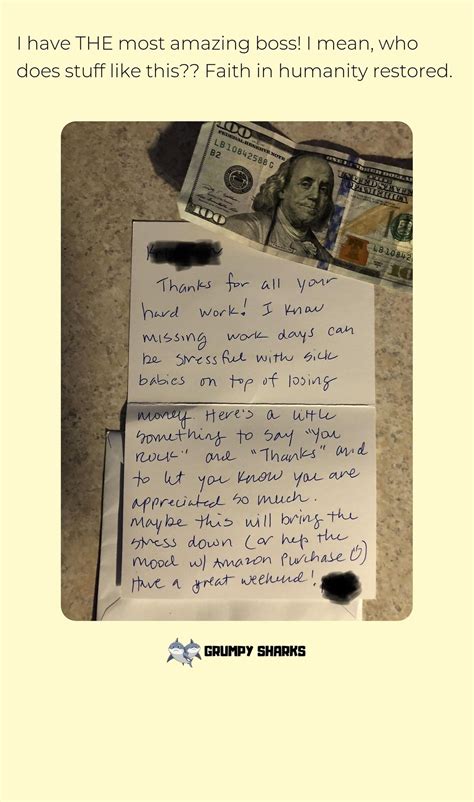 I have THE most amazing boss! I mean, who
does stuff like this?? Faith in humanity restored.
100
FEDERAL RESERVE NOTE
LB10842588G
B2
100
LB10842
Thanks for all your
hard work! I know
missing work days can
be stressful with sick
babies on top of losing
money. Here's a little
something to say "you
Rock" and "Thanks" and
to let you know you are
appreciated so much.
Maybe this will bring the
stress down (or help the
mood w/ Amazon purchase)
Have a great weekend!
GRUMPY SHARKS